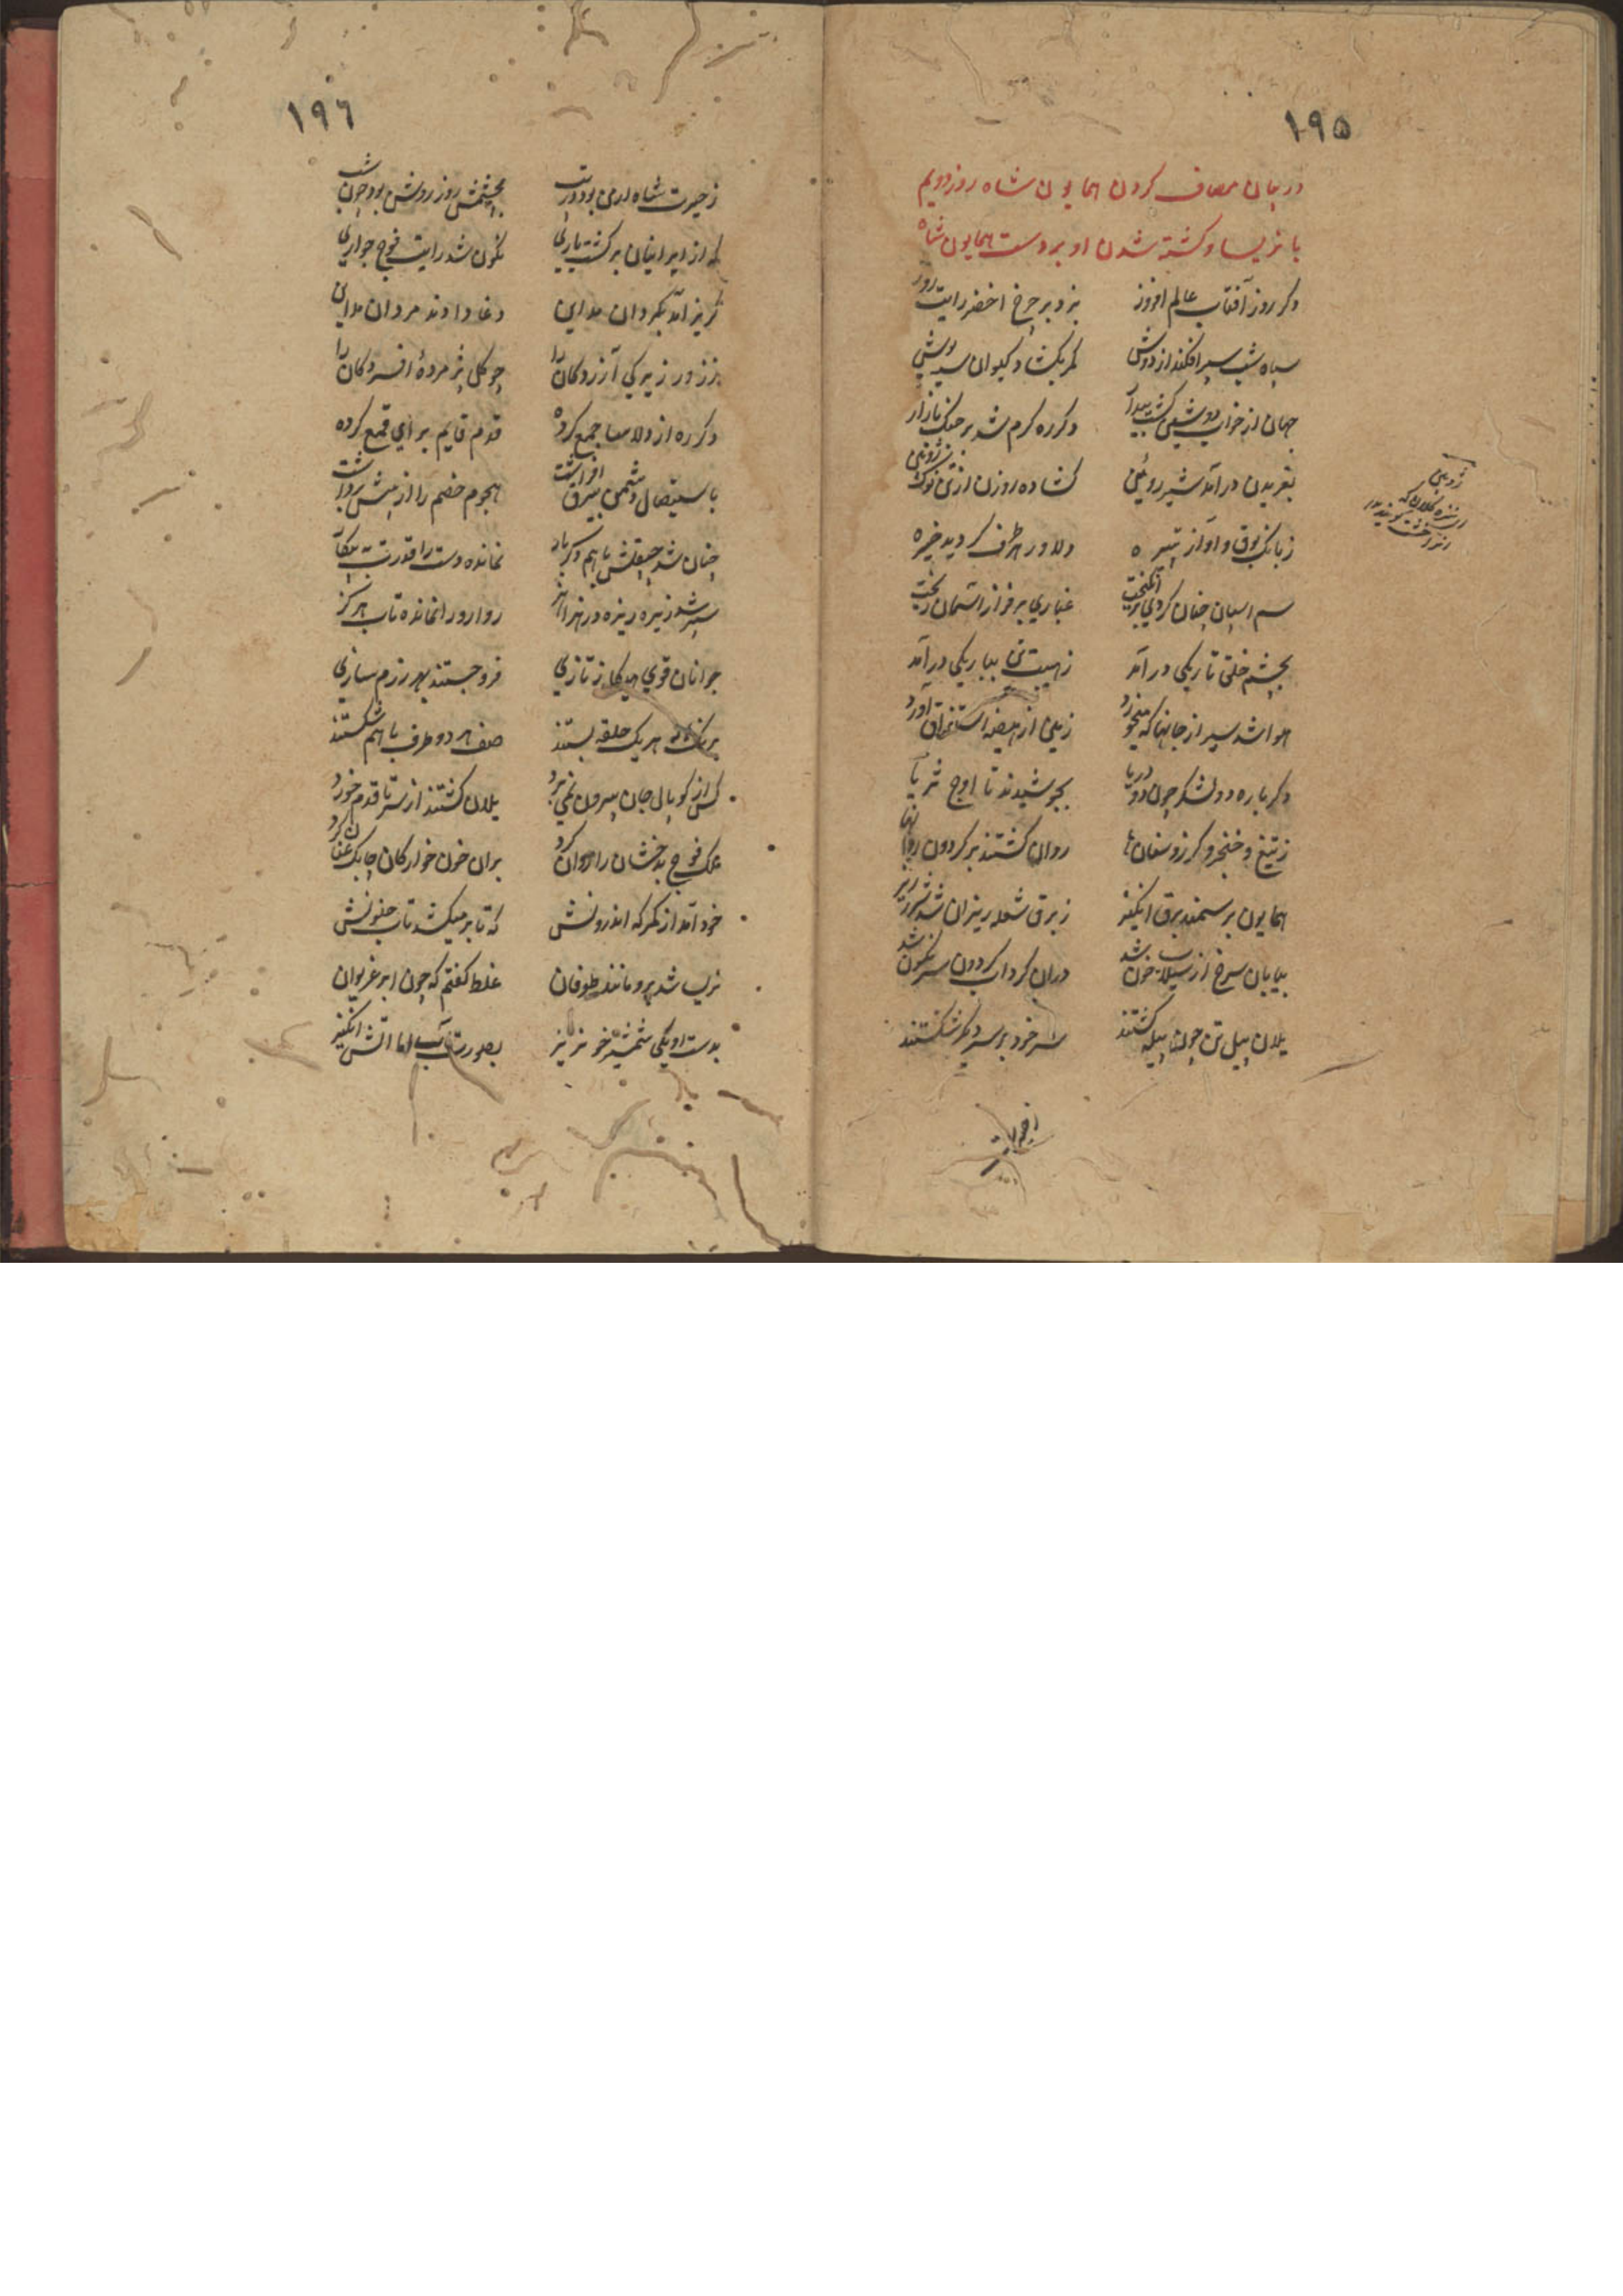 ۱۹۵
در بیان مصاف کردن همایون شاه روز دویم
با نریسا و کشته شدن او بر دست همایون شاه
دکر روز آفتاب عالم افروز بزد بر چرخ اخضر رایت روز
سیاه شب سپر افکند از دوش کمر بکشاد کیوان سیه پوش
جهان از خواب دوشین کشت بیدار دکر ره کرم شد بر جنک بازار
بغریدن در آمد شیر رویین کشاده روزن از نوک ژوپین
ز بانک بوق و آواز تبیره دلاور هر طرف کردید خیره
سم اسپان چنان کردی برانکیخت غباری بر فراز آسمان ریخت
بچشم خلق تاریکی در آمد ز هیبت تن بباریکی در آمد
هوا شد سیر از جانها که میخورد زمین از هیضه استفراق آورد
دکر باره دو لشکر چون دو دریا بجوشیدند تا اوج ثریا
ز تیغ و خنجر و کرز و سنانها روان کشتند بر کردون روانها
همایون بر سمند برق انکیز ز برق شعله ریزان شد شرر ریز
بیابان سرخ از سیلاب خون شد دران کرداب کردون سرنکون شد
یلان پیل تن چون پیله کشتند سر خود بر سر دیکر شکستند
ژوپین
نیزه کلان که
۱۹۶
ز حیرت شاه ارمن بود در تب بچشمش روز روشن بود چون شب
که از ایرانیان برکشت یاری نکون شد رایت فوج جواری
کریز آمد بکردان مداین دغا دادند مردان مداین
بزرور زیرکی آزردکان را چو کل پژمردهٔ افسردکان را
دکر ره از دلاسا جمع کرده قدم قایم برای قمع کرده
باستیصال دشمن بیرق افراشت هجوم خصم را از پیش برداشت
چنان شد چپقلش باهم دکر بار نمانده دست را قدرت به پیکار
سپر شد زیره ریزه در نهر روارو را نمانده تاب هرکز
جوانان قوی هیکل ز تازی فرو جستند بهر رزم سازی
بهر یک حلقه بستند صف هر دو طرف باهم شکستند
کس از کوپال جان بیرون نمی برد یلان کشتند از سر تا قدم خورد
فوج بدخشان را روان کرد بران خون خوارکان چابک عنان کرد
خود آمد از کمرکه اندرونش که تا بر میکشد تاب جنونش
نریسا شد برو مانند طوفان غلط کفتم که چون ابر غریوان
بدست او یکی شمشیر خونریز بصورت آب اما آتش انکیز